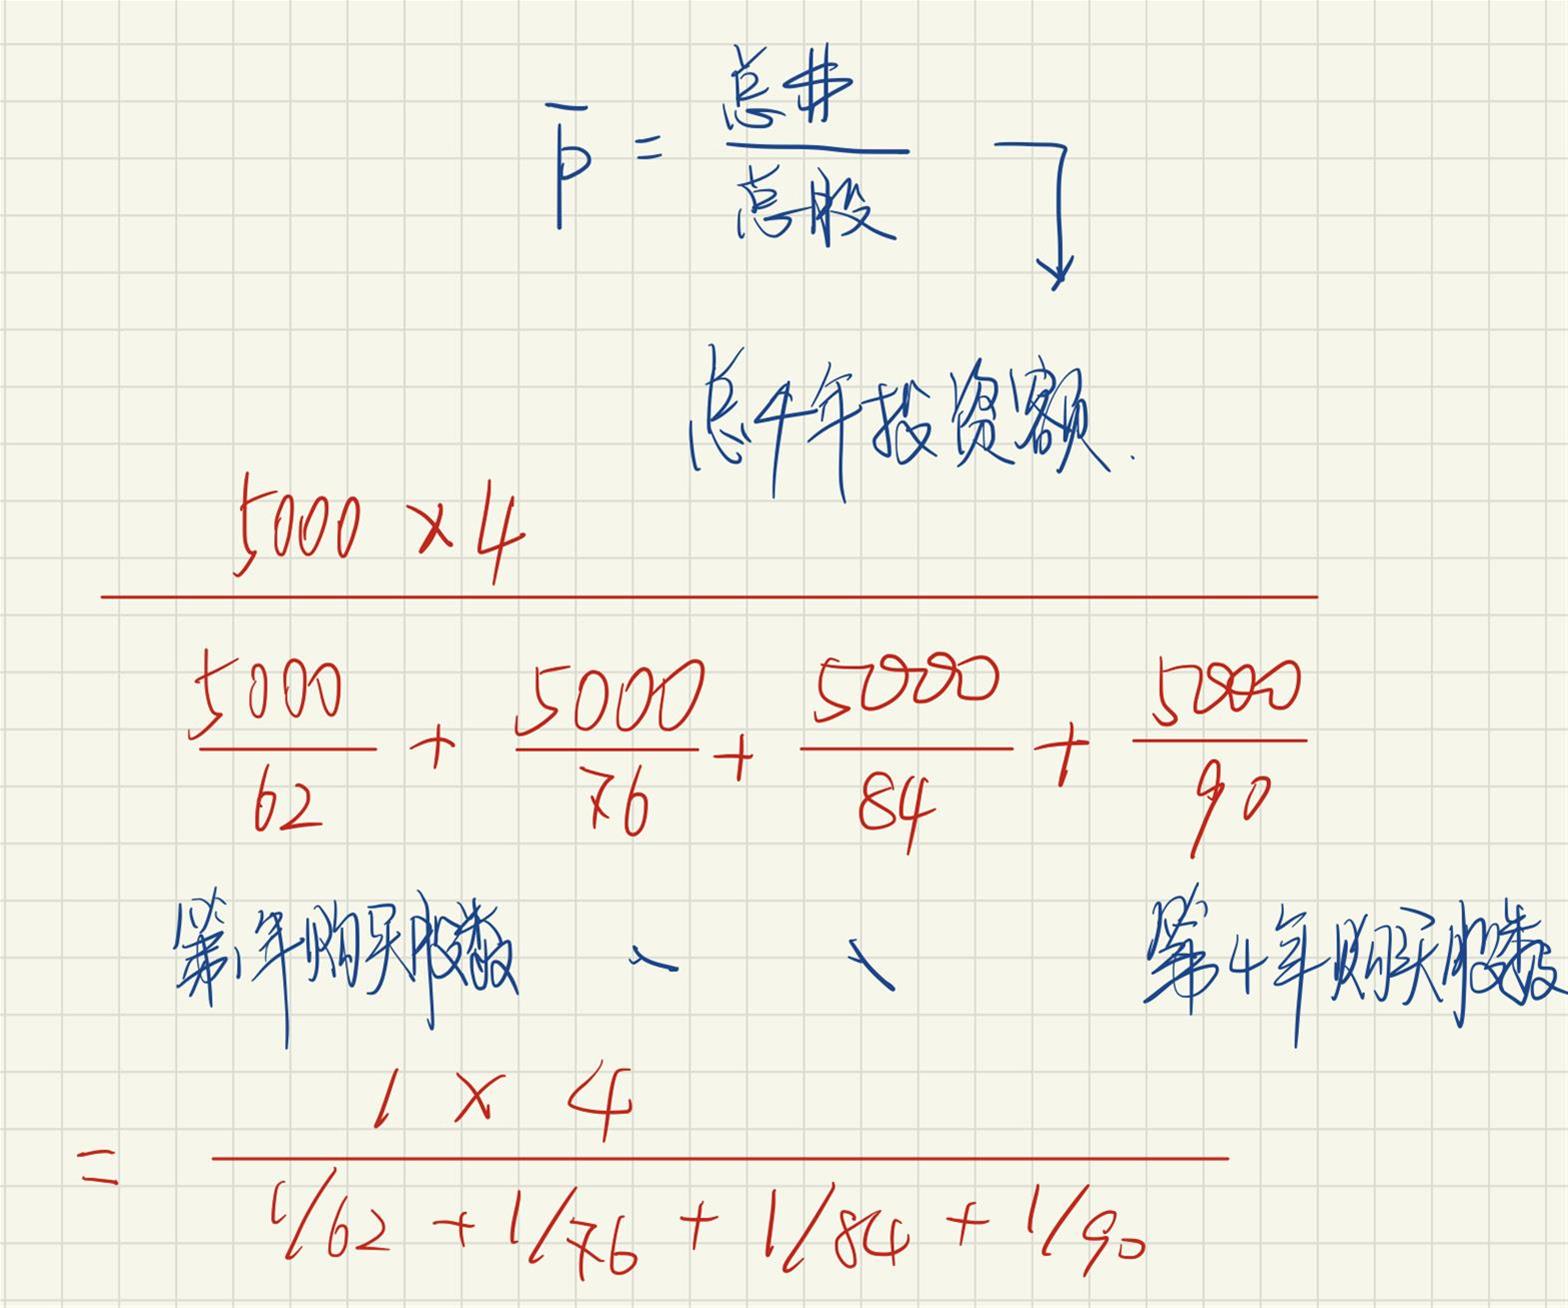 p̄ = 总$ / 总股
总4年投资额.
5000 × 4
5000/62 + 5000/76 + 5000/84 + 5000/90
第1年购买股数 、 、 第4年购买股数
= 1 × 4
1/62 + 1/76 + 1/84 + 1/90